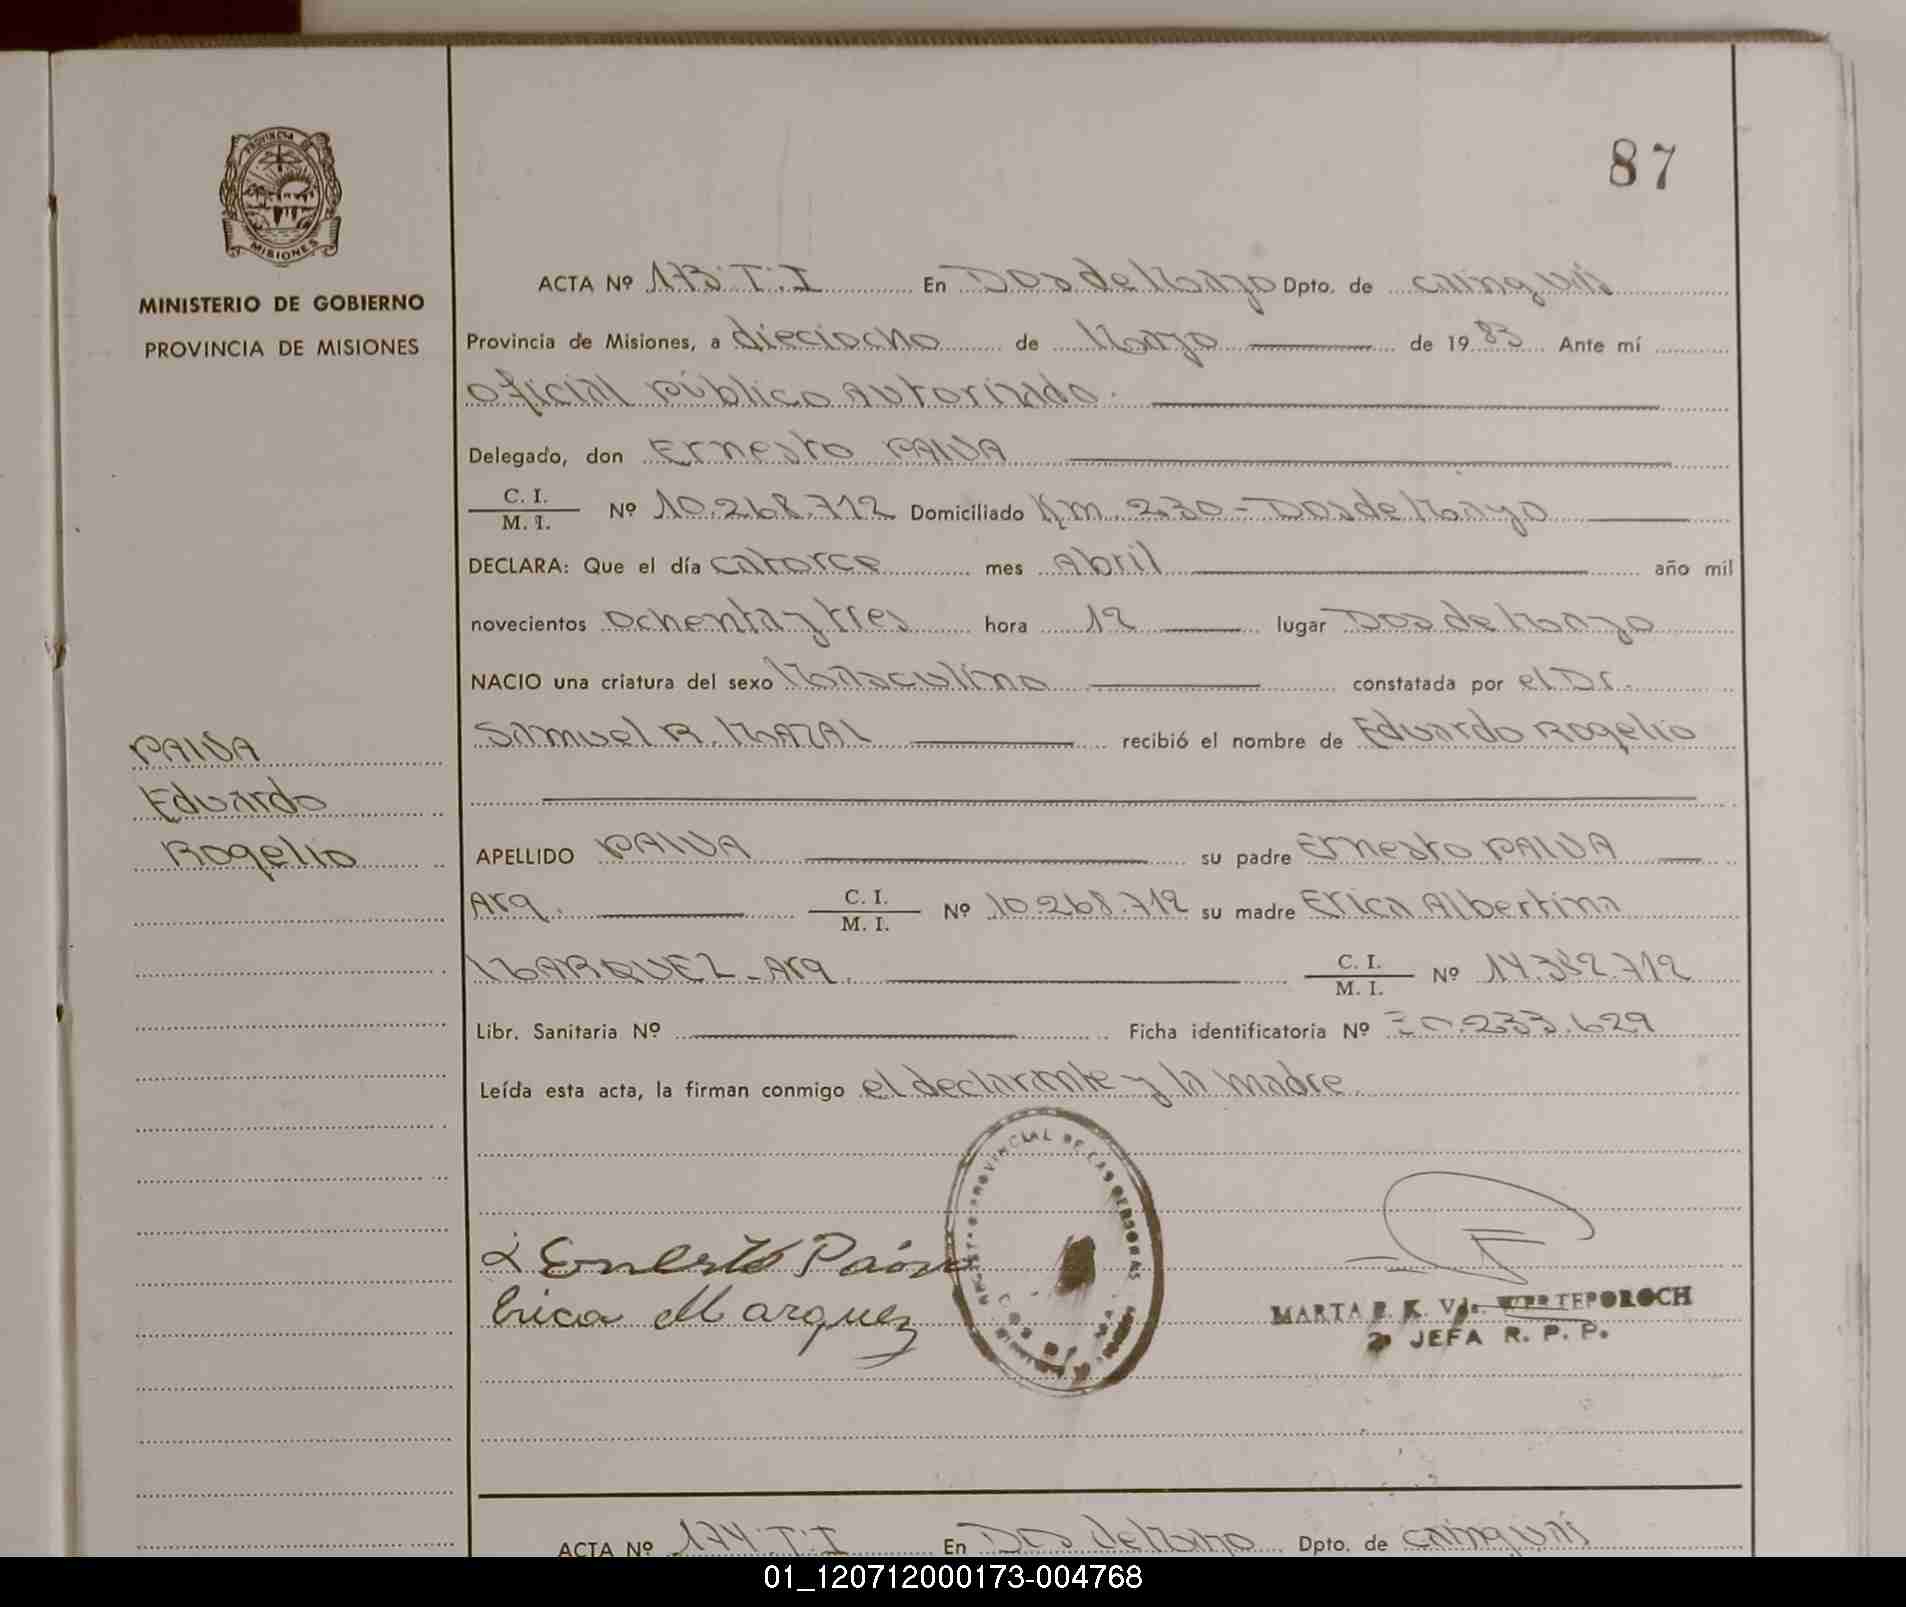 87
PROVINCIA DE
MISIONES
MINISTERIO DE GOBIERNO
PROVINCIA DE MISIONES
ACTA Nº 173.T.I En Dos de Mayo Dpto. de Cainguás
Provincia de Misiones, a dieciocho de Mayo de 1983 Ante mí
Oficial público autorizado.
Delegado, don Ernesto PAIVA
C. I. / M. I. Nº 10.268.712 Domiciliado Km. 230 - Dos de Mayo
DECLARA: Que el día catorce mes Abril año mil
novecientos ochenta y tres hora 12 lugar Dos de Mayo
NACIO una criatura del sexo Masculino constatada por el Dr.
Samuel R. MAZAL recibió el nombre de Eduardo Rogelio
PAIVA
Eduardo
Rogelio
APELLIDO PAIVA su padre Ernesto PAIVA
Arg. C. I. / M. I. Nº 10.268.712 su madre Erica Albertina
MARQUEZ - Arg. C. I. / M. I. Nº 14.382.712
Libr. Sanitaria Nº Ficha identificatoria Nº 30.233.629
Leída esta acta, la firman conmigo el declarante y la madre.
PROVINCIAL DE LAS PERSONAS
Ernesto
Erica Marquez
MARTA K. Vda.
JEFA R. P. P.
ACTA Nº 174.T.I En Dos de Mayo Dpto. de Cainguás
01_120712000173-004768